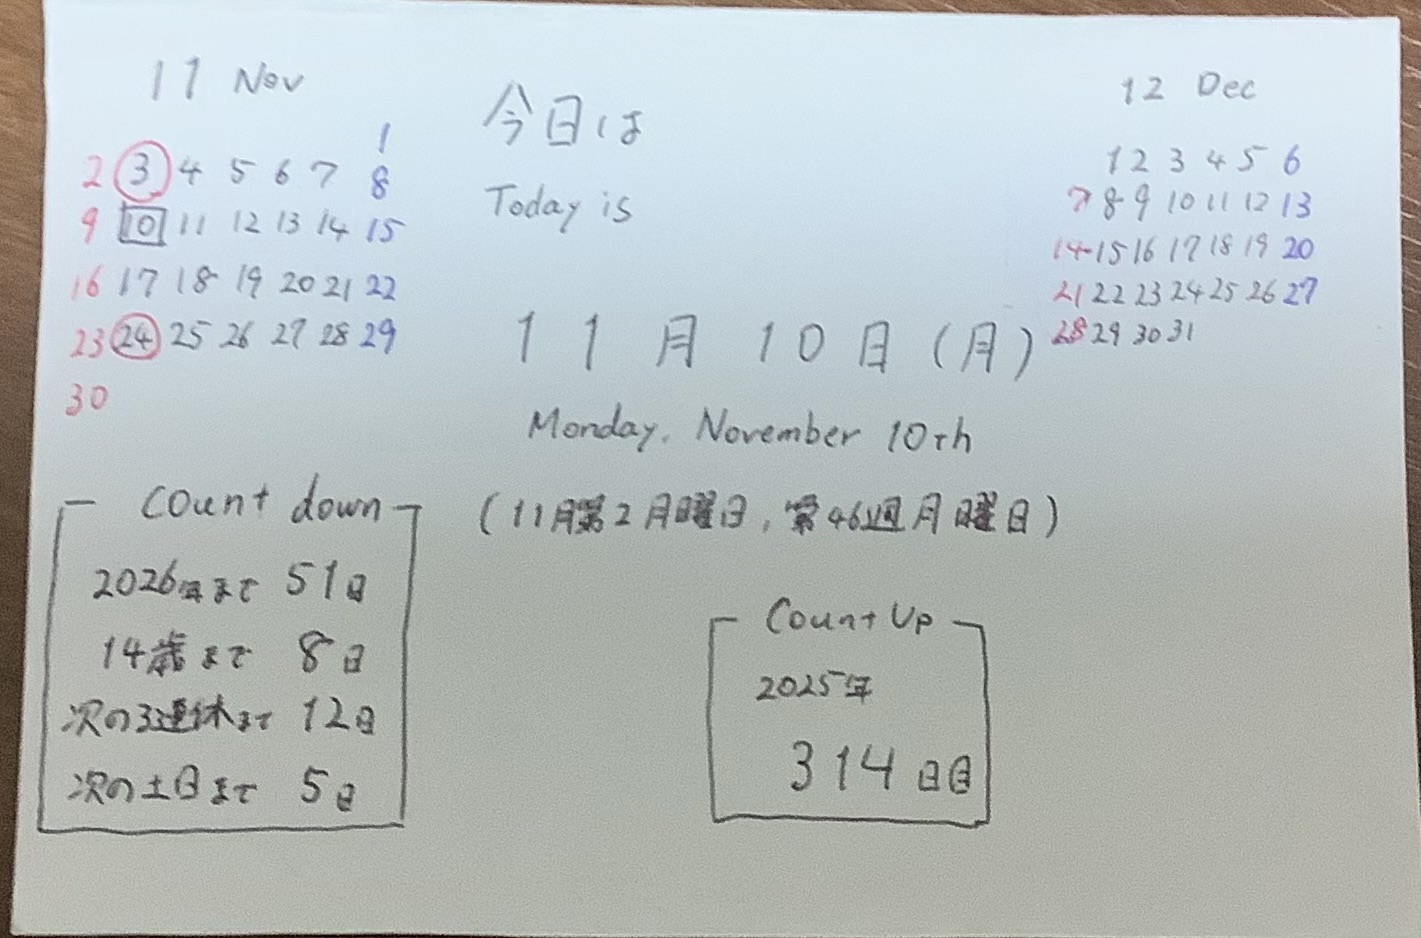 11 Nov
1
2 3 4 5 6 7 8
9 10 11 12 13 14 15
16 17 18 19 20 21 22
23 24 25 26 27 28 29
30
今日は
Today is
11月10日(月)
Monday, November 10th
(11月第2月曜日,第46週月曜日)
12 Dec
1 2 3 4 5 6
7 8 9 10 11 12 13
14 15 16 17 18 19 20
21 22 23 24 25 26 27
28 29 30 31
Count down
2026年まで 51日
14歳まで 8日
次の3連休まで 12日
次の土日まで 5日
Count Up
2025年
314日目